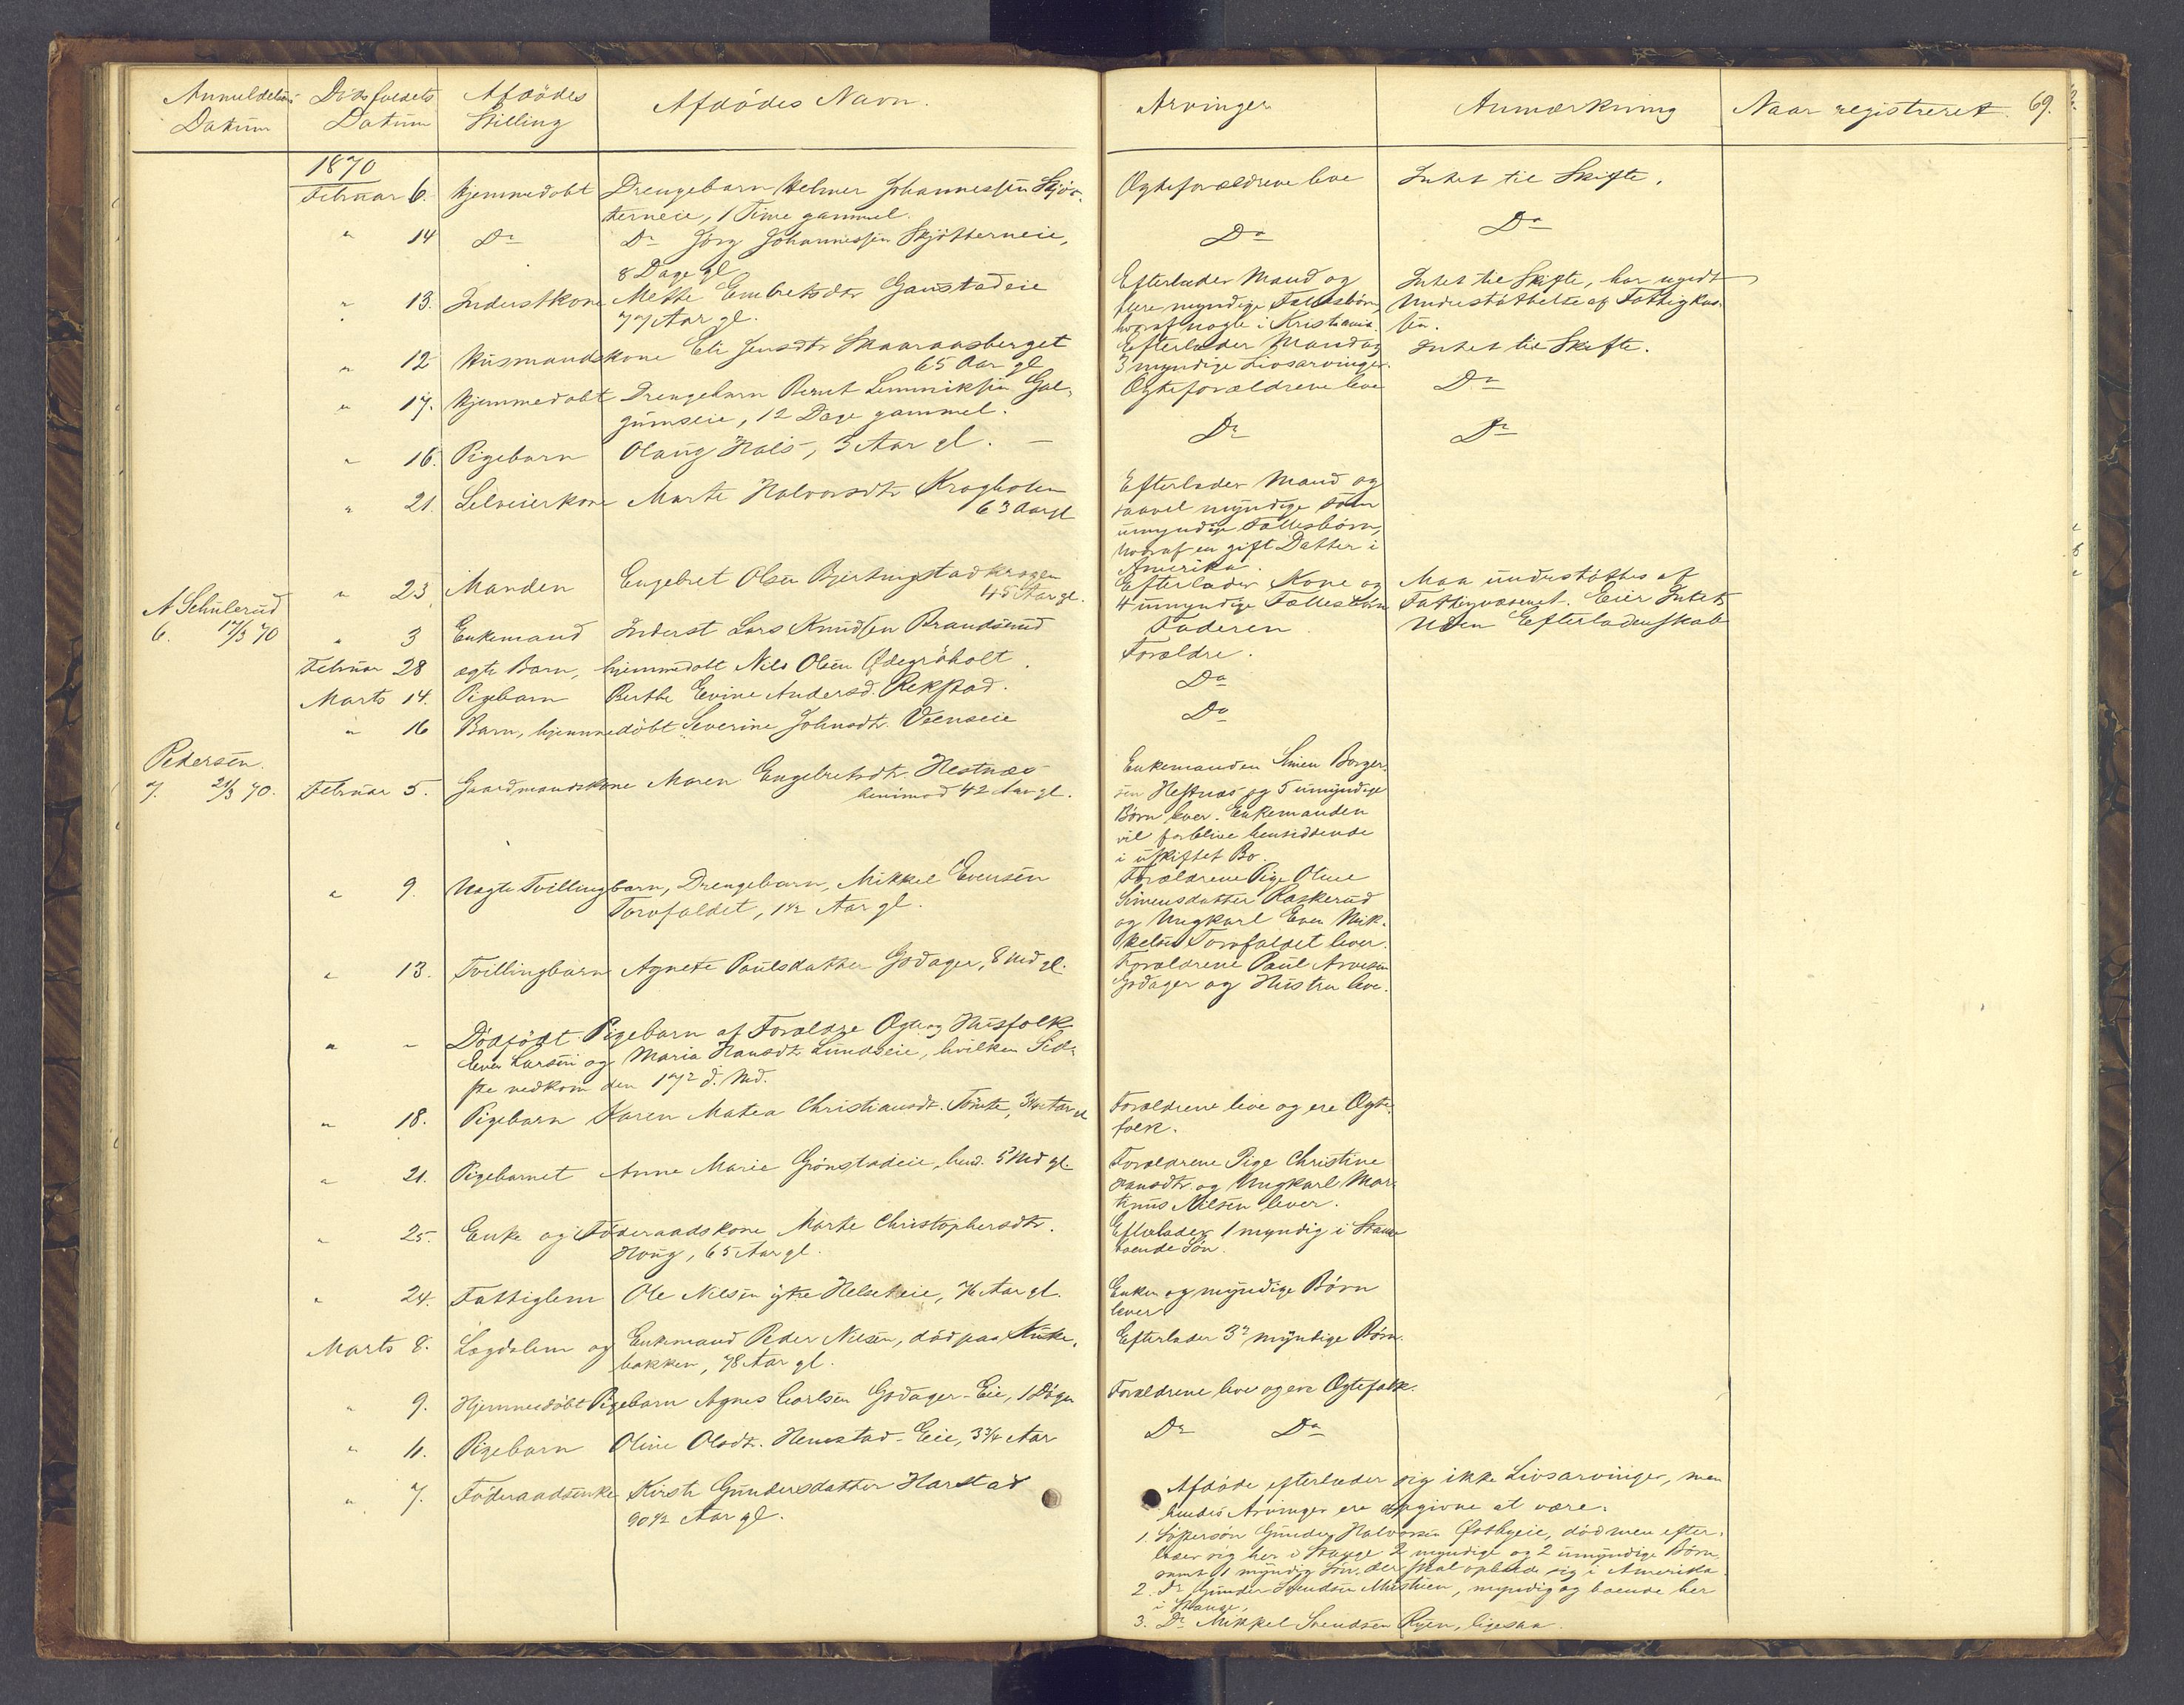 Anmeldelses Datum
Dödsfaldets Datum
Afdödes Stilling
Afdödes Navn.
Arvinger
Anmærkning
Naar registreret. 69.
1870
Februar 6. Hjemmedøbt Drengebarn Helmer Johannessen Skjöt- Ægteforældrene leve Intet til Skifte.
terneie, 1 Time gammel.
" 14 Do Do Jörg Johannessen Skjötterneie, Do Do
8 Dage gl.
" 13. Inderstkone Mette Embretsdtr Gaustadeie Efterlader Mand og Intet til Skifte, har nydt
77 Aar gl. flere myndige Fællesbörn, Understöttelse af Fattigkas-
hvoraf nogle i Kristiania. sen.
" 12 Husmandskone Eli Jensdtr Skaaraasberget Efterlader Mand og Intet til Skifte.
65 Aar gl 3 myndige Livsarvinger.
" 17. Hjemmedøbt Drengebarn Bernt Lemmiksen Gal- Ægteforældrene leve Do
gumseie, 12 Dage gammel.
" 16. Pigebarn Olaug Hals, 3 Aar gl. — Do Do
" 21. Selveierkone Marte Halvorsdtr Krogholen Efterlader Mand og
63 Aar gl saavel myndige som
umyndige Fællesbörn,
hvoraf en gift Datter i
Amerika.
" 23. Manden Engebret Olsen Bjertningstadkrogen Efterlader Kone og Maa understöttes af
45 Aar gl. 4 umyndige Fællesbörn Fattigvæsenet. Eier Intet
A Schulerud
6. 17/3 70 " 3 Enkemand Inderst Lars Knudsen Brandsrud Faderen Uden Efterladenskab
Februar 28 ægte Barn, hjemmedøbt Nils Olsen Ødegröholt. Forældre.
Marts 14. Pigebarn Berthe Evine Andersd. Rekstad. Do
" 16 Barn, hjemmedöbt Severine Johnsdtr. Veenseie Do
Pedersen.
7. 21/3 70. Februar 5. Gaardmandskone Maren Engebretsdtr. Hestnæs Enkemanden Simen Borger-
henimod 42 Aar gl. sen Hestnæs og 5 umyndige
Börn lever. Enkemanden
vil forblive hensiddende
i uskiftet Bo.
" 9. Uægte Tvillingbarn, Drengebarn, Mikkel Evensen Forældrene Pige Oline
Torvfaldet, 1 1/2 Aar gl. Simensdatter Raskerud
og Ungkarl Even Mik-
kelsen Torvfaldet lever.
" 13. Tvillingbarn Agnete Paulsdatter Godager, 8 Md gl. Forældrene Paul Arvesen
Godager og Hustru leve.
" " Dödfödt Pigebarn af Forældre Ægte og Husfolk
Even Larsen og Maria Hansdtr. Lundseie, hvilken Sid-
ste nedkom den 17de d. Md.
" 18. Pigebarn Karen Matea Christiansdt. Tomte, 3 1/4 Aar gl Forældrene leve og ere Ægte-
folk.
" 21. Pigebarnet Anne Marie Grönstadeie, hend. 5 Md gl. Forældrene Pige Christine
Hansdtr. og Ungkarl Mar-
thinus Nilsen lever.
" 25. Enke og Föderaadskone Marte Christophersdtr. Efterlader 1 myndig i Stange
Houg, 65 Aar gl. boende Sön.
" 24. Fattiglem Ole Nilsen ytre Helseteie, 76 Aar gl. Enken og myndige Börn
lever
Marts 8. Lægdslem og Enkemand Peder Nilsen, död paa Kuke- Efterlader 3de myndige Börn.
bakken, 78 Aar gl.
" 9. Hjemmedöbt Pigebarn Agnes Carlsen Godager-Eie, 1 Dögn Forældrene leve og ere Ægtefolk.
" 11. Pigebarn Oline Olsdt. Hemstad-Eie, 3 3/4 Aar Do Do
" 7. Föderaadsenke Kirsti Gundersdatter Harstad Afdöde efterlader sig ikke Livsarvinger, men
90 1/2 Aar gl. hendes Arvinger ere opgivne at være:
1. Söstersön Gunder Halvorsen Østbyeie, död men efter-
lader sig her i Stange 2 myndige og 2 umyndige Börn,
samt 1 myndig Sön, der skal opholde sig i Amerika.
2. Do Gunder Svendsen Mostuen, myndig og boende her
i Stange,
3. Do Mikkel Svendsen Ryen, ligesaa.